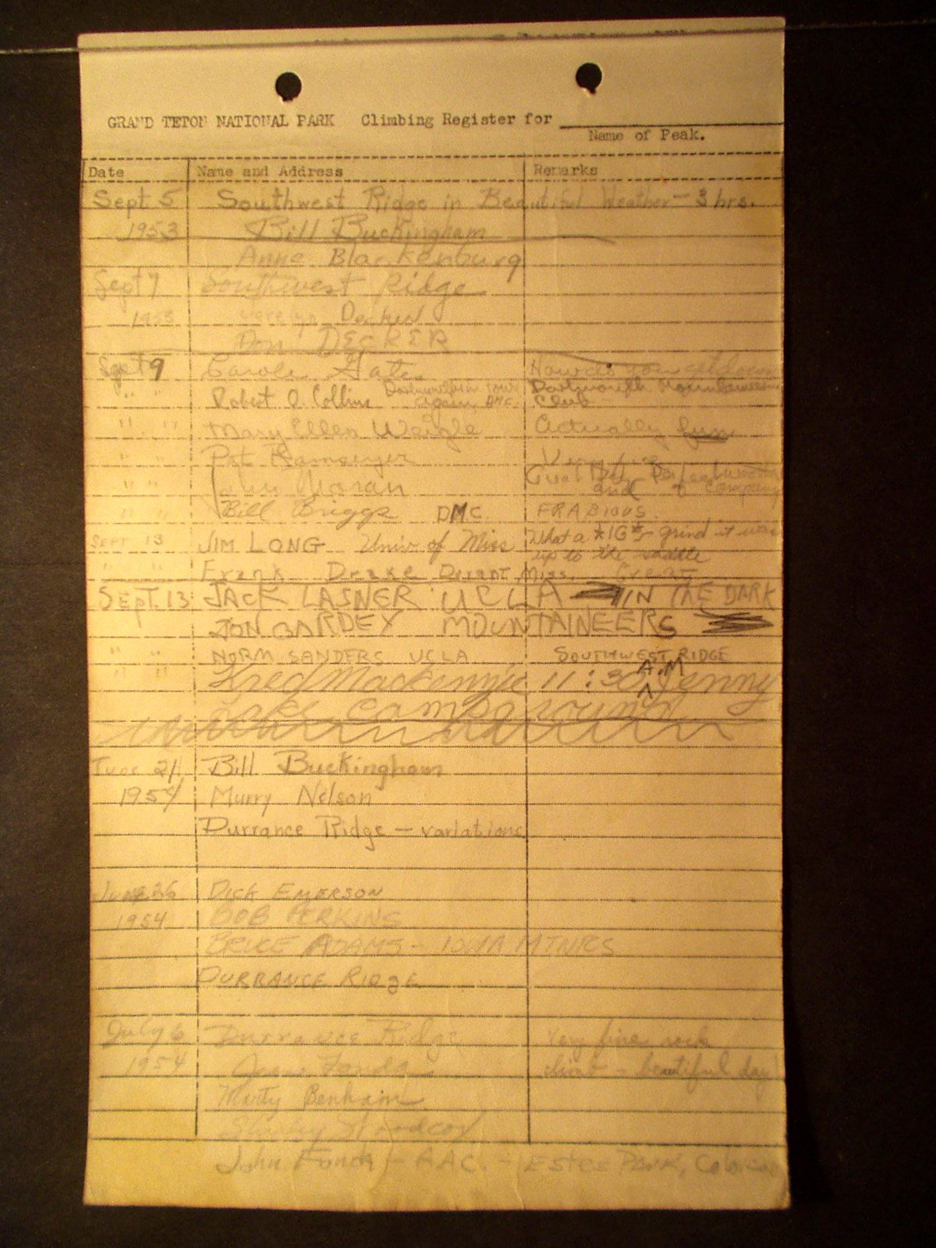 GRAND TETON NATIONAL PARK Climbing Register for
Name of Peak.
Date Name and Address Remarks
Sept 5 Southwest Ridge in Beautiful Weather - 3 hrs.
1953 Bill Buckingham
Anne Blankenburg
Sept 7 Southwest Ridge
1953
Don DECKER
Sept 9 Carole Gates How do you get down
" " Robert O. Collins again, DMC Dartmouth Mountaineering
Club
" " Mary Ellen Weigle Actually fun
" " Pat
" " John Moran and of company
" " Bill Briggs DMC FRABJOUS
SEPT 13 JIM LONG Univ of Miss What a *!G*? grind it was
up to the saddle
" " Frank Drake Miss. Great
SEPT. 13 JACK LASNER UCLA IN THE DARK
JON GARDEY MOUNTAINEERS
" " NORM SANDERS UCLA SOUTHWEST RIDGE
" " Fred Mackenzie 11:30 A.M Jenny
Lake campground
June 21, Bill Buckingham
1954 Murry Nelson
Durrance Ridge - variations
June 26 DICK EMERSON
1954 BOB PERKINS
BRUCE ADAMS - IOWA MTNRS
DURRANCE RIDGE
July 6 Durrance Ridge Very fine rock
1954 Jean Fonda climb - beautiful day!
Marty Benham
John Fonda - AAC. - Estes Park, Colorado